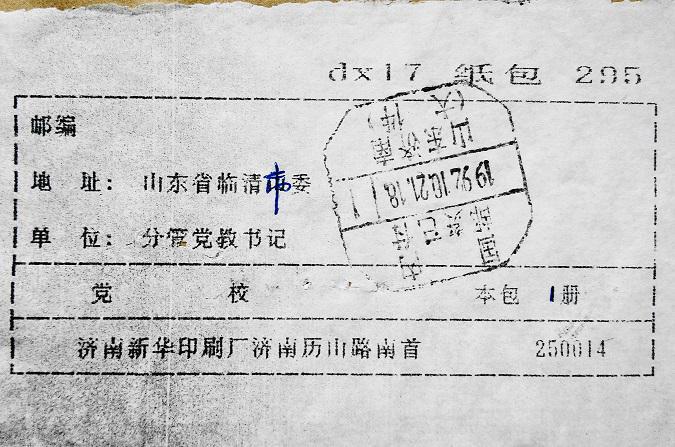 dx17 纸包 295
邮编
地 址: 山东省临清市委
单 位: 分管党教书记
党 校 本包 1册
济南新华印刷厂济南历山路南首 250014
山东济南
(大件)
1992.10.21.18
国内邮资已付